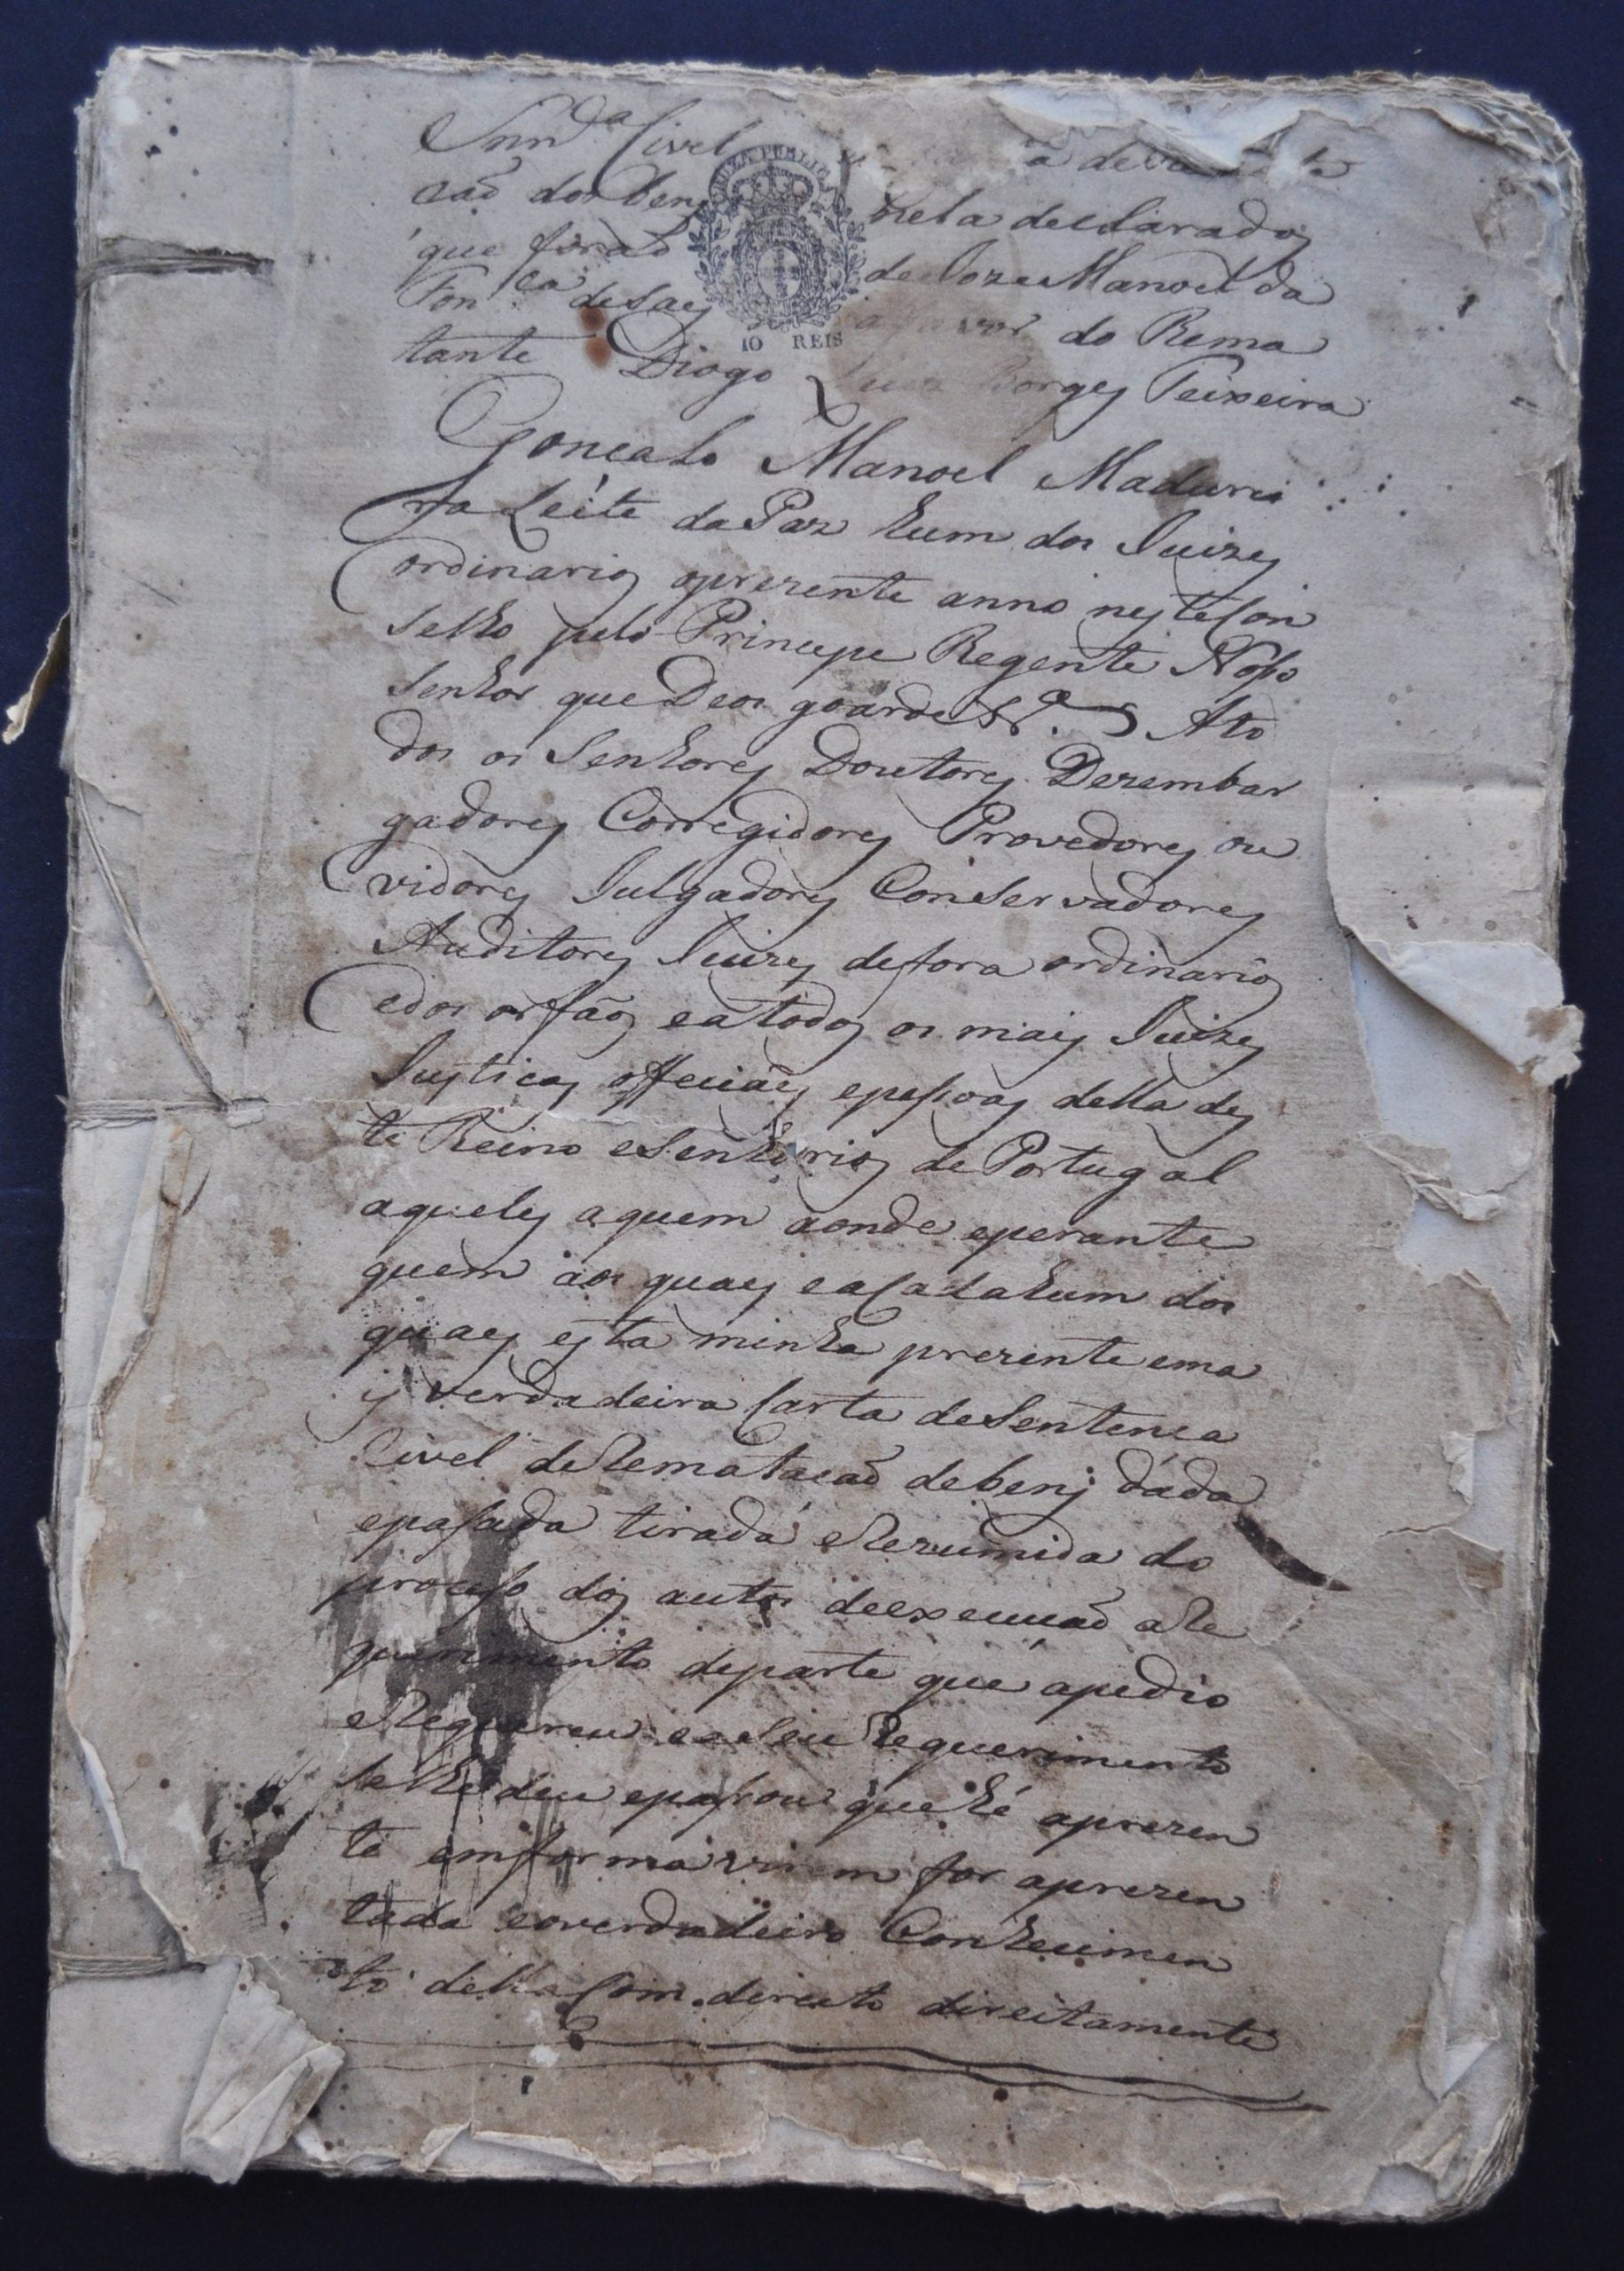 Snnᵈᵃ Civel
caõ dos bens nella declarados
que foraõ de Joze Manoel da
Fonᶜᵃ do Rema
tante Diogo Luis Borges Teixeira
10 REIS
Goncalo Manoel Madurei
ra Leite da Paz hum dos Juizes
ordinarios oprezente anno neste Con
selho pelo Principe Regente Nosso
Senhor que Deos goarde Ato
dos os Senhores Doutores Dezembar
gadores Corregidores Provedores ou
vidores Julgadores Conservadores
Auditores Juizes defora ordinarios
edos orfãos eatodos os mais Juizes
Justicas officiaes epessoas della des
te Reino eSenhorios de Portugal
aqueles aquem aonde eperante
quem aos quaes eaCadahum dos
quaes esta minha prezente ema
is verdadeira Carta deSentenca
Civel deRematacaõ debens dada
epasada tirada eRezumida do
proceso dos autos deexecucaõ aRe
querimento departe que apedio
eRequereu eaSeu Requerimento
selhedeu epassou que hé aprezen
te emforma virem for aprezen
tada eoverdadeiro Conhecimen
to della Com direito direitamente